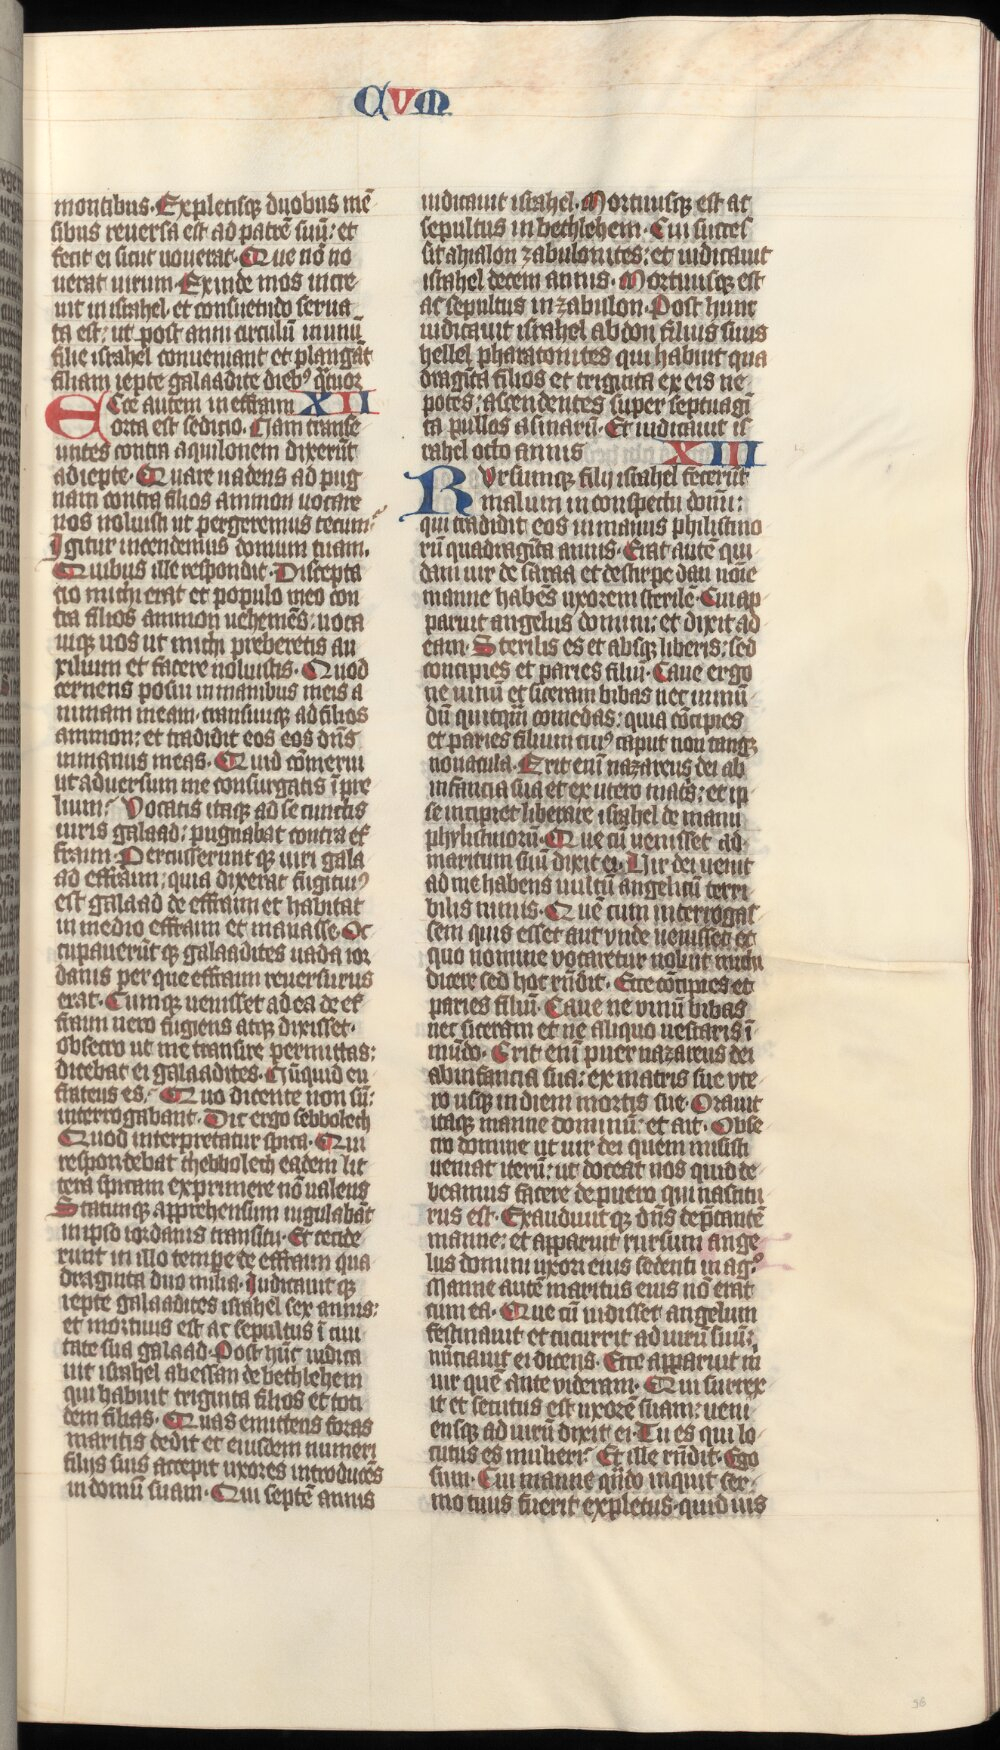 CUM
montibus. Expletisq; duobus mē
sibus reuersa est ad patrē suū: et
fecit ei sicut uouerat. Que nō no
uerat uirum. Exinde mos incre
uit in israhel. et consuetudo serua
ta est: ut post anni circulū in unū
filie israhel conueniant et plangāt
filiam iepte galaadite dieb9 q̄tuor
Ecce autem in effraim XII
orta est sedicio. Nam transe
untes contra aquilonem dixerūt
ad iepte. Quare uadens ad pug
nam contra filios ammon uocare
nos noluisti ut pergeremus tecum?
Igitur incendemus domum tuam.
Quibus ille respondit. Discepta
cio michi erat et populo meo con
tra filios ammon uehemēs: uoca
uiq; uos ut michi preberetis au
xilium et facere noluistis. Quod
cernens posui in manibus meis a
nimam meam. transiuiq; ad filios
ammon: et tradidit eos eos dn̄s
in manus meas. Quid cōmerui
ut aduersum me consurgatis ī pre
lium? Vocatis itaq; ad se cunctis
uiris galaad: pugnabat contra ef
fraim. Percusserunt q; uiri gala
ad effraim: quia dixerat fugitiu9
est galaad de effraim et habitat
in medio effraim et manasse. Oc
cupauerūt q; galaadites uada ior
danis per que effraim reuersurus
erat. Cumq; uenisset ad ea de ef
fraim uero fugiens atq; dixisset.
obsecro ut me transire permittas:
dicebat ei galaadites. Nūquid eu
frateus es? Quo dicente non sū:
interrogabant. Dic ergo sebbolech
Quod interpretatur spica. Qui
respondebat thebbolech eadem lit
tera spicam exprimere nō ualens
Statunq; apprehensum iugulabāt
in ipso iordanis transitu. Et cecide
runt in illo tempere de effraim qua
draginta duo milia. Iudicauit q;
iepte galaadites israhel sex annis:
et mortuus est ac sepultus ī ciui
tate sua galaad. Post hūc iudica
uit israhel abessan de bethlehem
qui habuit triginta filios et toti
dem filias. Quas emittens foras
maritis dedit et eiusdem numeri
filijs suis accepit uxores introducēs
in domū suam. Qui septē annis
iudicauit israhel. Mortuusq; est ac
sepultus in bethlehem. Cui succes
sit ahialon zabulonites: et iudicauit
israhel decem annis. Mortuusq; est
ac sepultus in zabulon. Post hunc
iudicauit israhel abdon filius sirus
hellel pharatonites qui habuit qua
dragīta filios et triginta ex eis ne
potes: ascendentes super septuagī
ta pullos asinarū. Et iudicauit is
rahel octo annis XIII
RVrsumq; filij israhel fecerūt
malum in conspectu domī:
qui tradidit eos in manus philistino
rū quadragīta annis. Erat autē qui
dam uir de saraa et de stirpe dan noīe
manne habēs uxorem sterilē. Cui ap
paruit angelus domini: et dixit ad
eam. Sterilis es et absq; liberis: sed
concipies et paries filiū. Caue ergo
ne uinū et siceram bibas nec inmū
dū quicq̄m comedas: quia cōcipies
et paries filium cui9 caput non tangz
nouacula. Erit enī nazareus dei ab
infancia sua et ex utero matˢ: et ip
se incipiet liberare israhel de manu
phylistinorū. Que cū uenisset ad
maritum suū dixit ei. Uir dei uenit
ad me habens uultū angelicū terri
bilis nimis. Quē cum interrogas
sem quis esset aut unde uenisset et
quo nomine vocaretur noluit michi
dicere sed hoc rn̄dit. Ecce cōcipies et
paries filiū. Caue ne vinū bibas
nec siceram et ne aliquo uescaris ī
mūdo. Erit enī puer nazareus dei
ab infancia sua: ex matris sue vte
ro usq; in diem mortis sue. Orauit
itaq; manne dominū: et ait. Obse
cro domine ut uir dei quem misisti
ueniat iterū: ut doceat nos quid de
beamus facere de puero qui nascitu
rus est. Exaudiuit q; dn̄s dep̄cantē
manne: et apparuit rursum ange
lus domini uxori eius sedenti in ag°
Manne autē maritus eius nō erat
cum ea. Que cū uidisset angelum
festinauit et cucurrit ad uirū suū:
nūciauit ei dicens. Ecce apparuit m̄
uir quē ante videram. Qui surrex
it et secutus est uxorē suam: ueni
ensq; ad uirū dixit ei. Tu es qui lo
cutus es mulieri? Et ille rn̄dit. Ego
sum. Cui manne qn̄do inquit ser
mo tuus fuerit expletus. quid uis
98